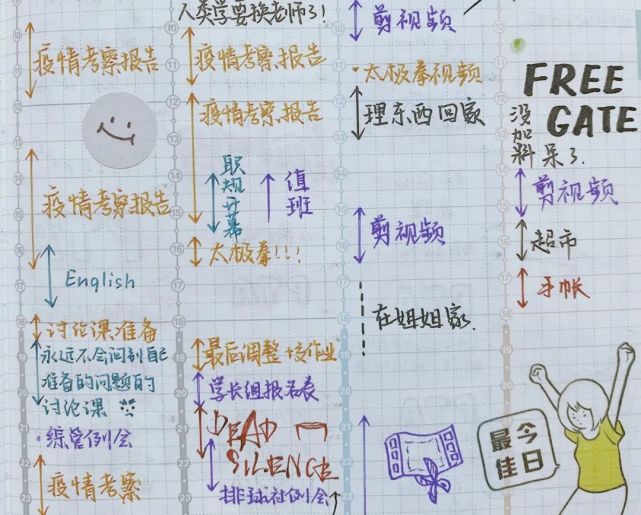 疫情考察报告
疫情考察报告
English
讨论课准备
永远不会问到自己
准备的问题的
讨论课
·综管例会
疫情考察
人类学要换老师了!
疫情考察报告
疫情考察报告
职规开幕
值班
太极拳!!!
最后调整+交作业
学长组报名表
DEAD
SILENCE
排球社例会
剪视频
·太极拳视频
理东西回家
剪视频
在姐姐家.
FREE
GATE
没加料呆了.
剪视频
超市
手帐
今日
最佳